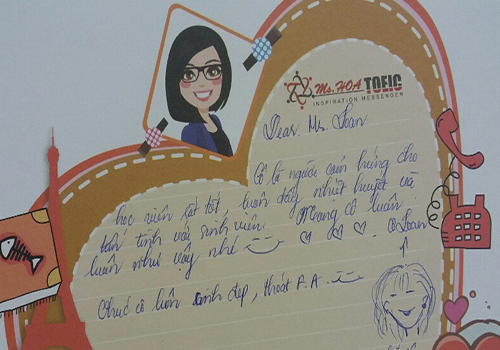 Ms. HOA TOEIC
INSPIRATION MESSENGER
Dear Ms. Loan
Cô là người cảm hứng cho
học viên rất tốt luôn dạy nhiệt huyết và
tận tình với sinh viên. Mong cô luôn
luôn như vậy nhé
Cô Loan
Chúc cô luôn xinh đẹp, thoát F.A